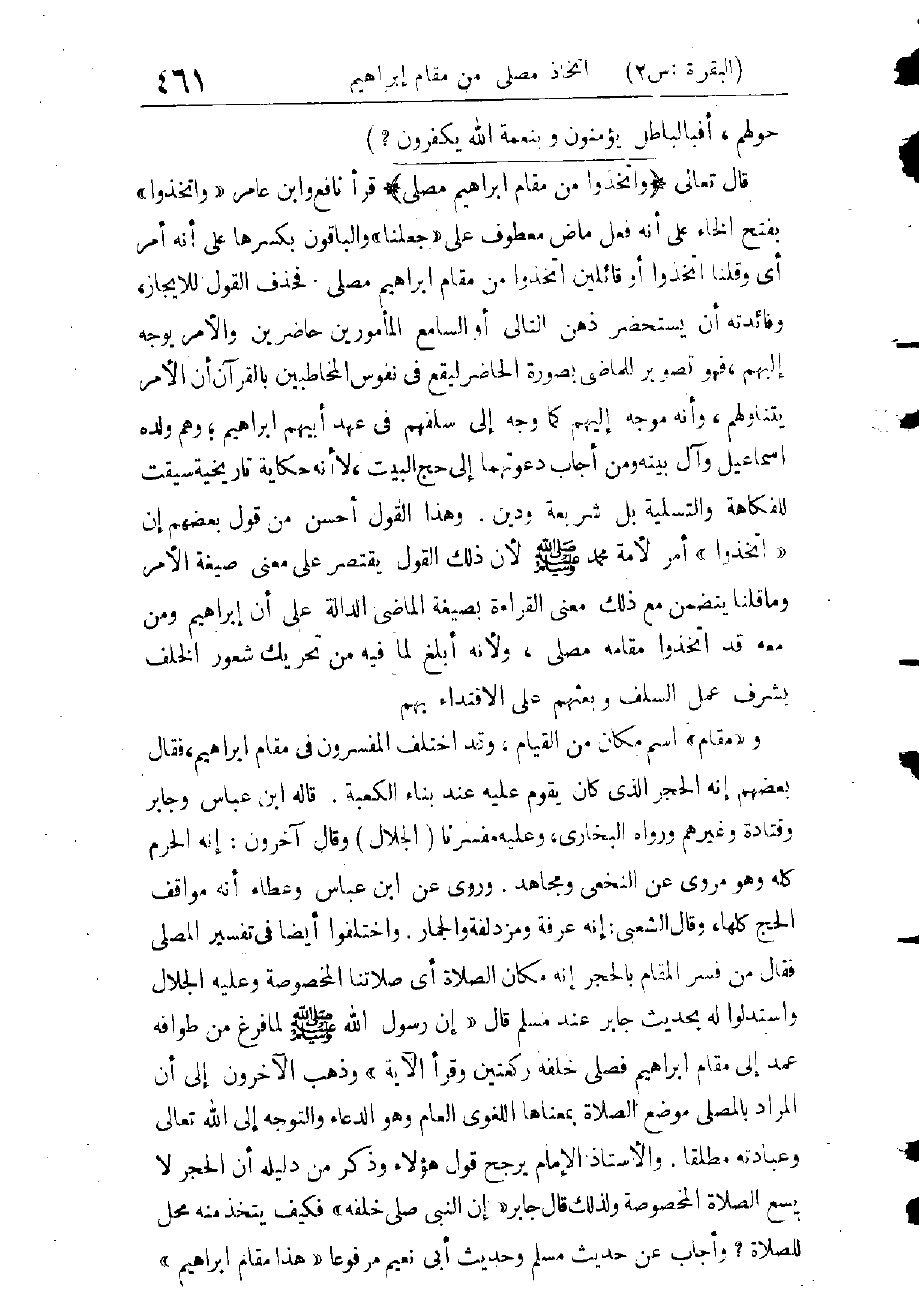 (البقرة : س٢) اتخاذ مصلى من مقام إبراهيم ٤٦١
حولهم ، أفبالباطل يؤمنون و بنعمة الله يكفرون ؟ )
قال تعالى ﴿واتخذوا من مقام ابراهيم مصلى﴾ قرأ نافع وابن عامر « واتخذوا »
بفتح الخاء على أنه فعل ماض معطوف على «جعلنا» والباقون بكسرها على أنه أمر
أى وقلنا اتخذوا أو قائلين اتخذوا من مقام ابراهيم مصلى . فحذف القول للايجاز،
وفائدته أن يستحضر ذهن التالى أو السامع المأمورين حاضرين والأمر يوجه
إليهم ، فهو تصوير للماضى بصورة الحاضر ليقع فى نفوس المخاطبين بالقرآن أن الأمر
يتناولهم ، وأنه موجه إليهم كما وجه إلى سلفهم فى عهد أبيهم ابراهيم ؛ وهم ولده
اسماعيل وآل بيته ومن أجاب دعوتهما إلى حج البيت ، لا أنه حكاية تاريخية سيقت
للفكاهة والتسلية بل شريعة ودين . وهذا القول أحسن من قول بعضهم إن
« اتخذوا » أمر لأمة محمد ﷺ لأن ذلك القول يقتصر على معنى صيغة الأمر
وماقلنا يتضمن مع ذلك معنى القراءة بصيغة الماضى الدالة على أن إبراهيم ومن
معه قد اتخذوا مقامه مصلى ، ولأنه أبلغ لما فيه من تحريك شعور الخلف
بشرف عمل السلف و بعثهم على الاقتداء بهم
و «مقام» اسم مكان من القيام ، وقد اختلف المفسرون فى مقام ابراهيم، فقال
بعضهم إنه الحجر الذى كان يقوم عليه عند بناء الكعبة . قاله ابن عباس وجابر
وقتادة وغيرهم ورواه البخارى، وعليه مفسرنا ( الجلال ) وقال آخرون : إنه الحرم
كله وهو مروى عن النخعى ومجاهد . وروى عن ابن عباس وعطاء أنه مواقف
الحج كلها، وقال الشعبى: إنه عرفة ومزدلفة والجمار . واختلفوا أيضا فى تفسير المصلى
فقال من فسر المقام بالحجر إنه مكان الصلاة أى صلاتنا المخصوصة وعليه الجلال
واستدلوا له بحديث جابر عند مسلم قال « إن رسول الله ﷺ لما فرغ من طوافه
عمد إلى مقام ابراهيم فصلى خلفه ركعتين وقرأ الآية » وذهب الآخرون إلى أن
المراد بالمصلى موضع الصلاة بمعناها اللغوى العام وهو الدعاء والتوجه إلى الله تعالى
وعبادته مطلقا . والأستاذ الإمام يرجح قول هؤلاء وذكر من دليله أن الحجر لا
يسع الصلاة المخصوصة ولذلك قال جابر« إن النبى صلى خلفه» فكيف يتخذ منه محل
للصلاة ؟ وأجاب عن حديث مسلم وحديث أبى نعيم مرفوعا « هذا مقام ابراهيم »